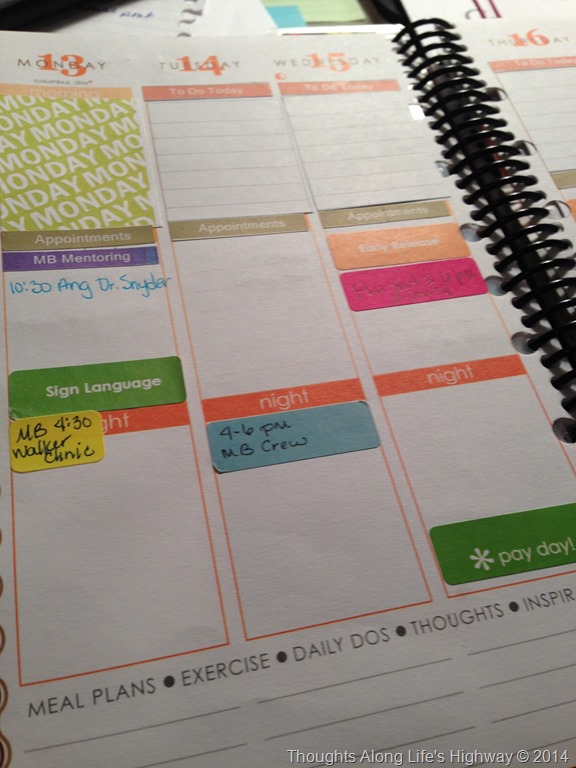 MONDAY 13
TUESDAY 14
WEDNESDAY 15
THURSDAY 16
columbus day*
morning
To Do Today
To Do Today
To Do Today
ONDAY MONDAY
MONDAY MO
DAY MONDAY
ONDAY MON
MONDAY MO
DAY MONDAY
Appointments
Appointments
Appointments
MB Mentoring
Early Release
10:30 Ang Dr. Snyder
Sign Language
ght
night
night
MB 4:30
Walker
Clinic
4-6 pm
MB Crew
* pay day!
MEAL PLANS ● EXERCISE ● DAILY DOS ● THOUGHTS ● INSPIR
Thoughts Along Life's Highway © 2014